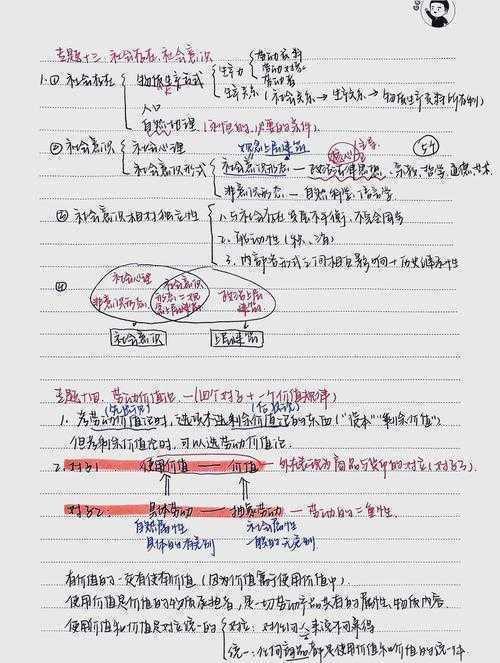 专题十三、社会存在、社会意识
1. ① 社会存在 物质生产方式 生产力 劳动资料
劳动对象
劳动者
生产关系 (社会关系 → 生产关系 → 物质生产资料所有制)
人口
自然地理 (必要的条件)
② 社会意识 社会心理 观念上层建筑 核心 主导 54
社会意识形式 社会意识形态 — 政治法律思想、宗教、哲学、道德、艺术
非意识形态 — 自然科学、语言学
③ 社会意识相对独立性 1. 与社会存在发展不平衡、不完全同步
2. 能动性
3. 内部各形式之间相互影响 + 历史继承性
④ 社会心理 社会意识 政治上层
非意识形态 形态=观 建筑
念上层建筑
社会意识 上层建筑
专题十四、劳动价值论 —(四个对立 + 一个价值规律)
1. 考劳动价值论时,选项不选剩余价值论的东西 ("资本""剩余价值")
但考剩余价值论时,可以选劳动价值论.
2. 对立1 使用价值 — 价值 — 外在表现为商品与货币的对立(对立3)
对立2 具体劳动 — 抽象劳动 — 劳动的二重性.
自然属性 社会属性
具体的有差别 一般的无差别
有价值的一定有使用价值
使用价值是价值的物质承担者,是一切劳动产品共有的属性、物质内容
使用价值和价值是对立统一的 对立:对任何人来说不可兼得
统一:任何商品都是使用价值和价值的统一体